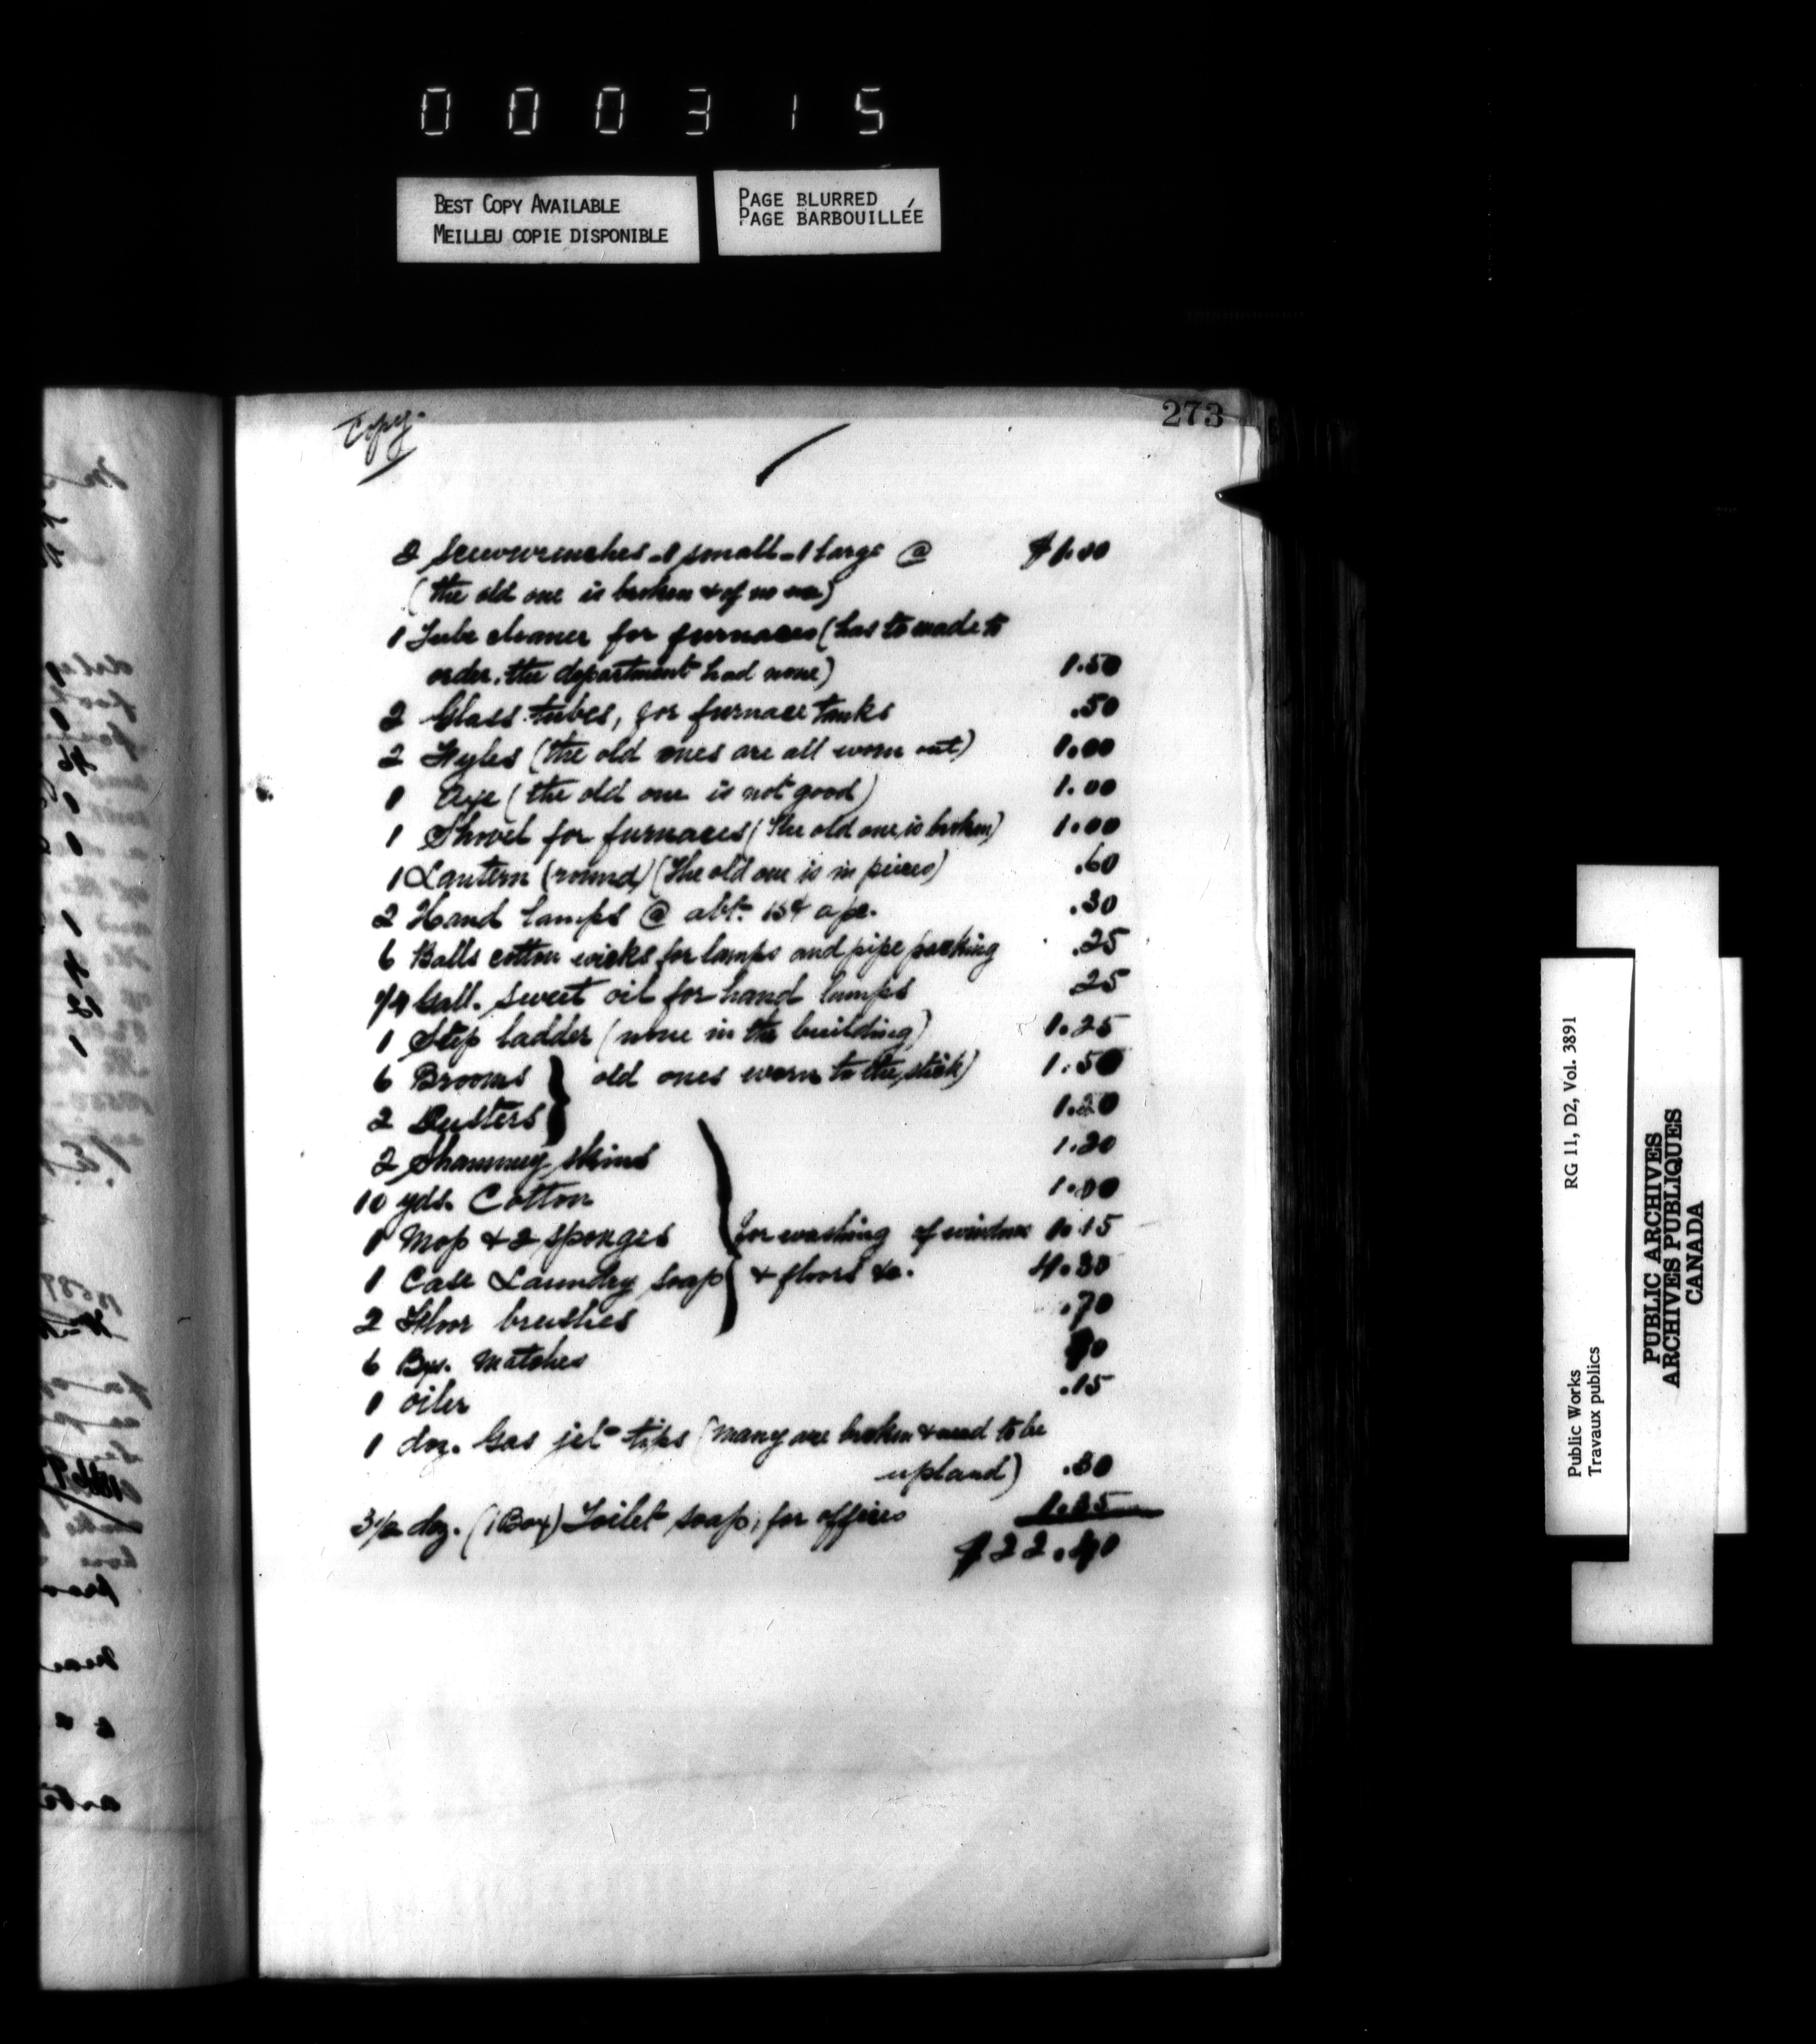 000315
BEST COPY AVAILABLE
MEILLEU COPIE DISPONIBLE
PAGE BLURRED
PAGE BARBOUILLÉE
273
Copy.
2 Screwwrenches - 1 small - 1 large @ $1.00
(the old one is broken & of no use)
1 Tube cleaner for furnaces (has to made to
order, the department had none) 1.50
2 Glass tubes, for furnace tanks .50
2 Fyles (the old ones are all worn out) 1.00
1 Axe (the old one is not good) 1.00
1 Shovel for furnaces (The old one is broken) 1.00
1 Lantern (round) (The old one is in pieces) .60
2 Hand lamps @ abt. 15¢ apc. .30
6 Balls cotton wicks for lamps and pipe packing .25
1/4 Gall. sweet oil for hand lamps 25
1 Step ladder (none in the building) 1.25
6 Brooms } old ones worn to the stick) 1.50
2 Dusters 1.20
2 Shammy skins 1.20
10 yds. Cotton 1.00
1 Mop & 2 sponges } for washing of windows 1.15
1 Case Laundry soap & floors &c. 4.30
2 Floor brushes .70
6 Bxs. Matches
1 oiler .15
1 doz. Gas jet tips (many are broken & need to be
.30
3 1/2 doz. (1 Box) Toilet soap, for offices
$22.
Public Works
Travaux publics
RG 11, D2, Vol. 3891
PUBLIC ARCHIVES
ARCHIVES PUBLIQUES
CANADA